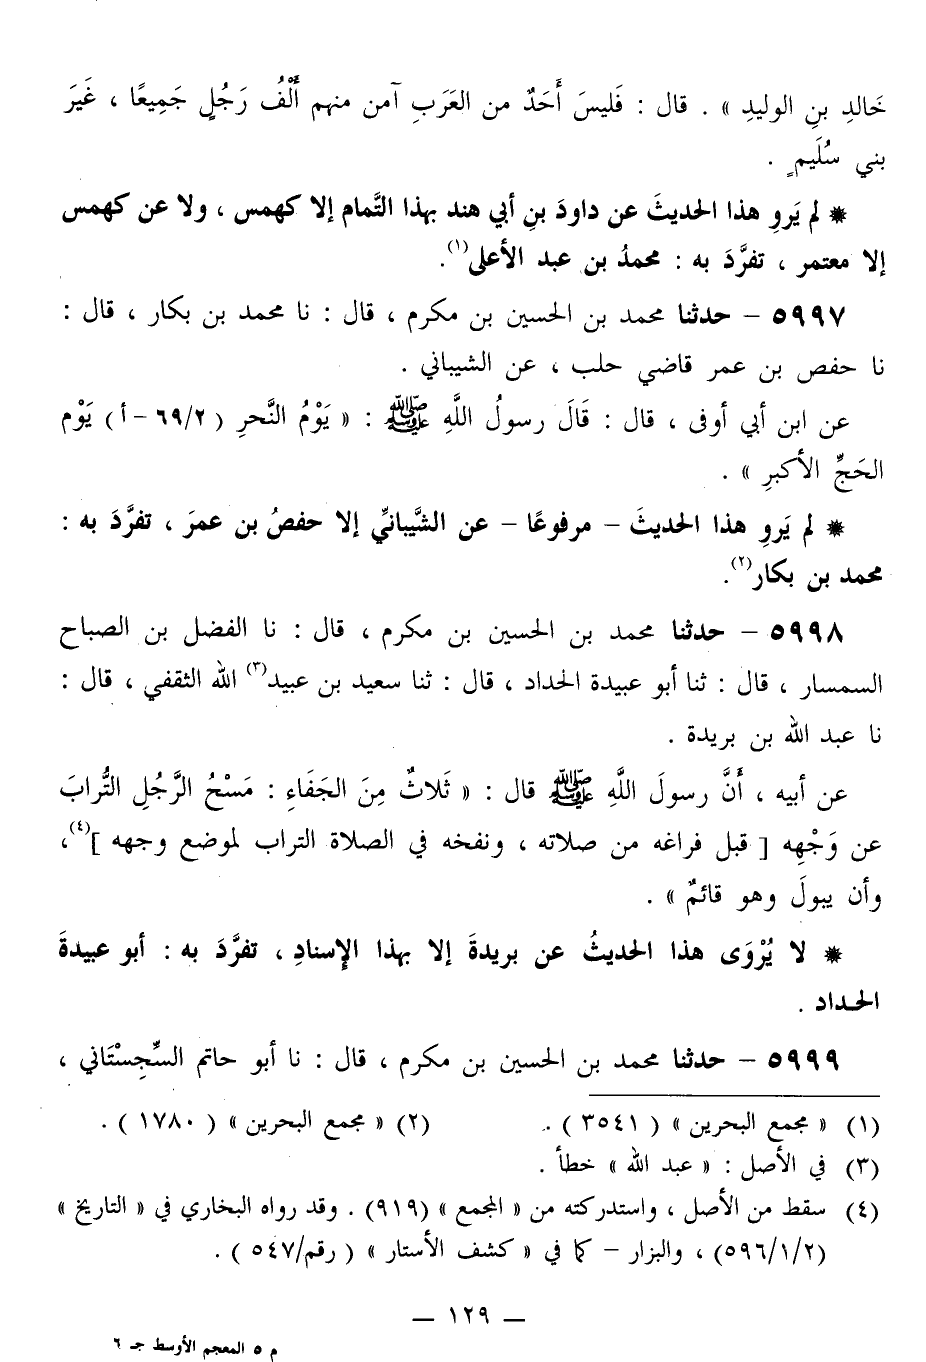 خَالدِ بنِ الوليدِ » . قال : فَليسَ أَحَدٌ من العَرَبِ آمن منهم أَلْفُ رَجُلٍ جَميعًا ، غَيَرَ
بني سُلَيمٍ .
* لم يَروِ هذا الحديثَ عن داودَ بنِ أبي هند بهذا التَّمام إلا كهمس ، ولا عن كهمس
إلا معتمر ، تفرَّدَ به : محمدُ بن عبد الأعلى(١).
٥٩٩٧ – حدثنا محمد بن الحسين بن مكرم ، قال : نا محمد بن بكار ، قال :
نا حفص بن عمر قاضي حلب ، عن الشيباني .
عن ابن أبي أوفى ، قال : قَالَ رسولُ اللَّهِ ﷺ : « يَوْمُ النَّحرِ ( ٦٩/٢ – أ ) يَوْم
الحَجِّ الأكبرِ » .
* لم يَروِ هذا الحديثَ – مرفوعًا – عن الشَّيبانيِّ إلا حفصُ بن عمرَ ، تفرَّدَ به :
محمد بن بكار(٢).
٥٩٩٨ – حدثنا محمد بن الحسين بن مكرم ، قال : نا الفضل بن الصباح
السمسار ، قال : ثنا أبو عبيدة الحداد ، قال : ثنا سعيد بن عبيد(٣) الله الثقفي ، قال :
نا عبد الله بن بريدة .
عن أبيه ، أَنَّ رسولَ اللَّهِ ﷺ قال : « ثَلاثٌ مِنَ الجَفَاءِ : مَسْحُ الرَّجُلِ التُّرابَ
عن وَجْهِه [ قبل فراغه من صلاته ، ونفخه في الصلاة التراب لموضع وجهه ](٤)،
وأن يبولَ وهو قائمٌ » .
* لا يُرْوَى هذا الحديثُ عن بريدةَ إلا بهذا الإسنادِ ، تفرَّدَ به : أبو عبيدةَ
الحداد .
٥٩٩٩ – حدثنا محمد بن الحسين بن مكرم ، قال : نا أبو حاتم السِّجِسْتَاني ،
(١) « مجمع البحرين » ( ٣٥٤١ ) . (٢) « مجمع البحرين » ( ١٧٨٠ ) .
(٣) في الأصل : « عبد الله » خطأ .
(٤) سقط من الأصل ، واستدركته من « المجمع » (٩١٩) . وقد رواه البخاري في « التاريخ »
(٥٩٦/١/٢) ، والبزار – كما في « كشف الأستار » ( رقم/٥٤٧ ) .
— ١٢٩ —
م ٥ المعجم الأوسط جـ ٦